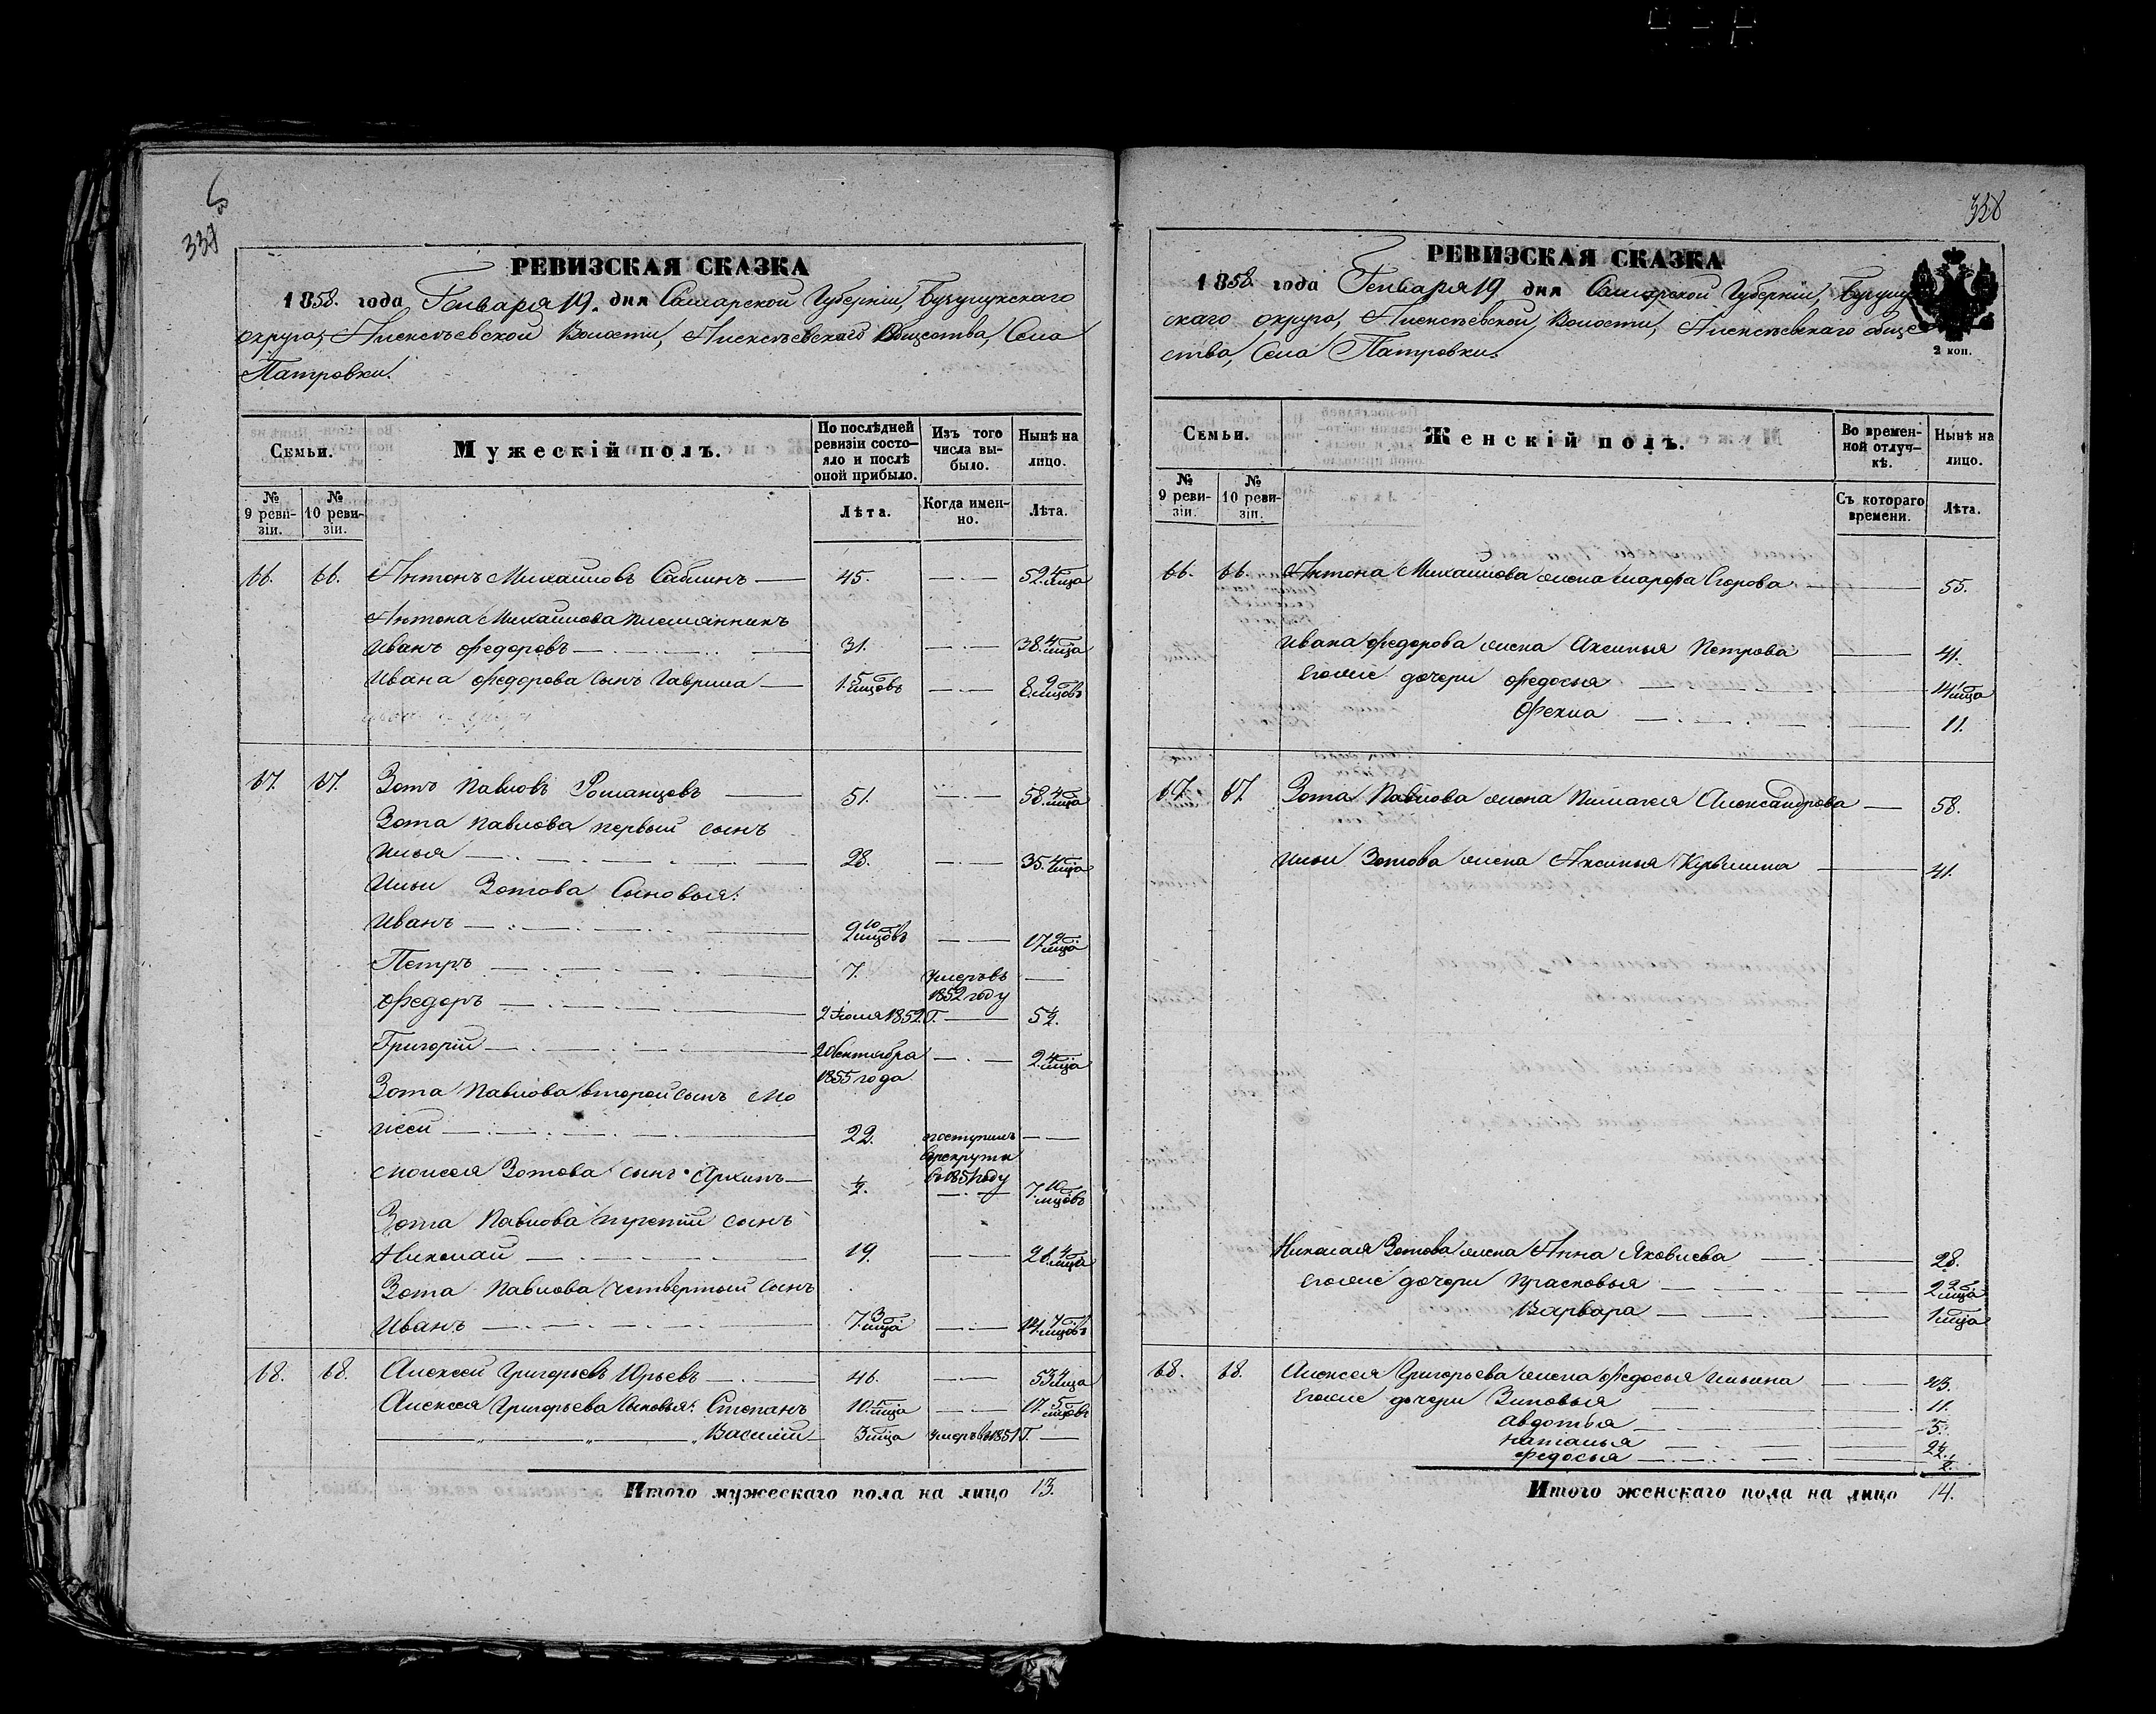 337
РЕВИЗСКАЯ СКАЗКА
1858. года Генваря 19. дня Самарской Губерніи, Бузулукскаго
округа, Алексѣевской Волости, Алексѣевскаго Общества, Села
Патровки.
Семьи.
Мужескій полъ.
По послѣдней ревизіи состояло и послѣ оной прибыло.
Изъ того числа выбыло.
Нынѣ на лицо.
№ 9 ревизіи.
№ 10 ревизіи.
Лѣта.
Когда именно.
Лѣта.
66. 66. Антонъ Михайловъ Саблинъ 45. 52 4/мца
Антона Михайлова племянникъ
Иванъ Федоровъ 31. 38. 4/мца
Ивана Федорова сынъ Гаврила 1. 5/мцовъ 8. 9/мцовъ
67. 67. Зотъ Павловъ Романцовъ 51. 58. 4/мца
Зота Павлова первый сынъ
Илья 28. 35. 4/мца
Ильи Зотова Сыновья:
Иванъ 9 10/мцовъ 17 2/мца
Петръ 7. умеръ въ
1852 году
Федоръ 2 Іюля 1852 Г. 5 1/2.
Григорій 20 Сентября 2. 4/мца
1855 года
Зота Павлова второй сынъ Мо
исей 22. поступилъ
врекруты
въ 1851 году
Моисея Зотова сынъ Архипъ 1/2. 7. 10/мцовъ
Зота Павлова третій сынъ
Николай 19. 26. 4/мца
Зота Павлова четвертый сынъ
Иванъ 7. 3/мца 14. 7/мцовъ
68. 68. Алексей Григорьевъ Юрьевъ 46. 53 4/мца
Алексея Григорьева сыновья: Степанъ 10. мца 17. 5/мцовъ
Василій 3 мца умеръ въ 1851 Г.
Итого мужескаго пола на лицо 13.
338
РЕВИЗСКАЯ СКАЗКА
1858. года Генваря 19 дня Самарской Губерніи, Бузулук
скаго округа, Алексѣевской Волости, Алексѣевскаго обще
ства, Села Патровки.
2 коп.
Семьи.
Женскій полъ.
Во временной отлучкѣ.
Нынѣ на лицо.
№ 9 ревизіи.
№ 10 ревизіи.
Съ котораго времени.
Лѣта.
66. 66. Антона Михайлова жена Марфа Егорова 55.
Ивана Федорова жена Аксинья Петрова 41.
Егоже дочери Федосья 14 мца
Фекла 11.
67. 67. Зота Павлова жена Пелагея Александрова 58.
Ильи Зотова жена Аксинья Кузьмина 41.
Николая Зотова жена Анна Яковлева 28.
Егоже дочери Прасковья 2 мца
Варвара 1 мца
68. 68. Алексея Григорьева жена Федосья Ильина 43.
Егоже дочери Зиновья 11.
Авдотья 5.
Наталья 2 1/2.
Федосья 1/2.
Итого женскаго пола на лицо 14.